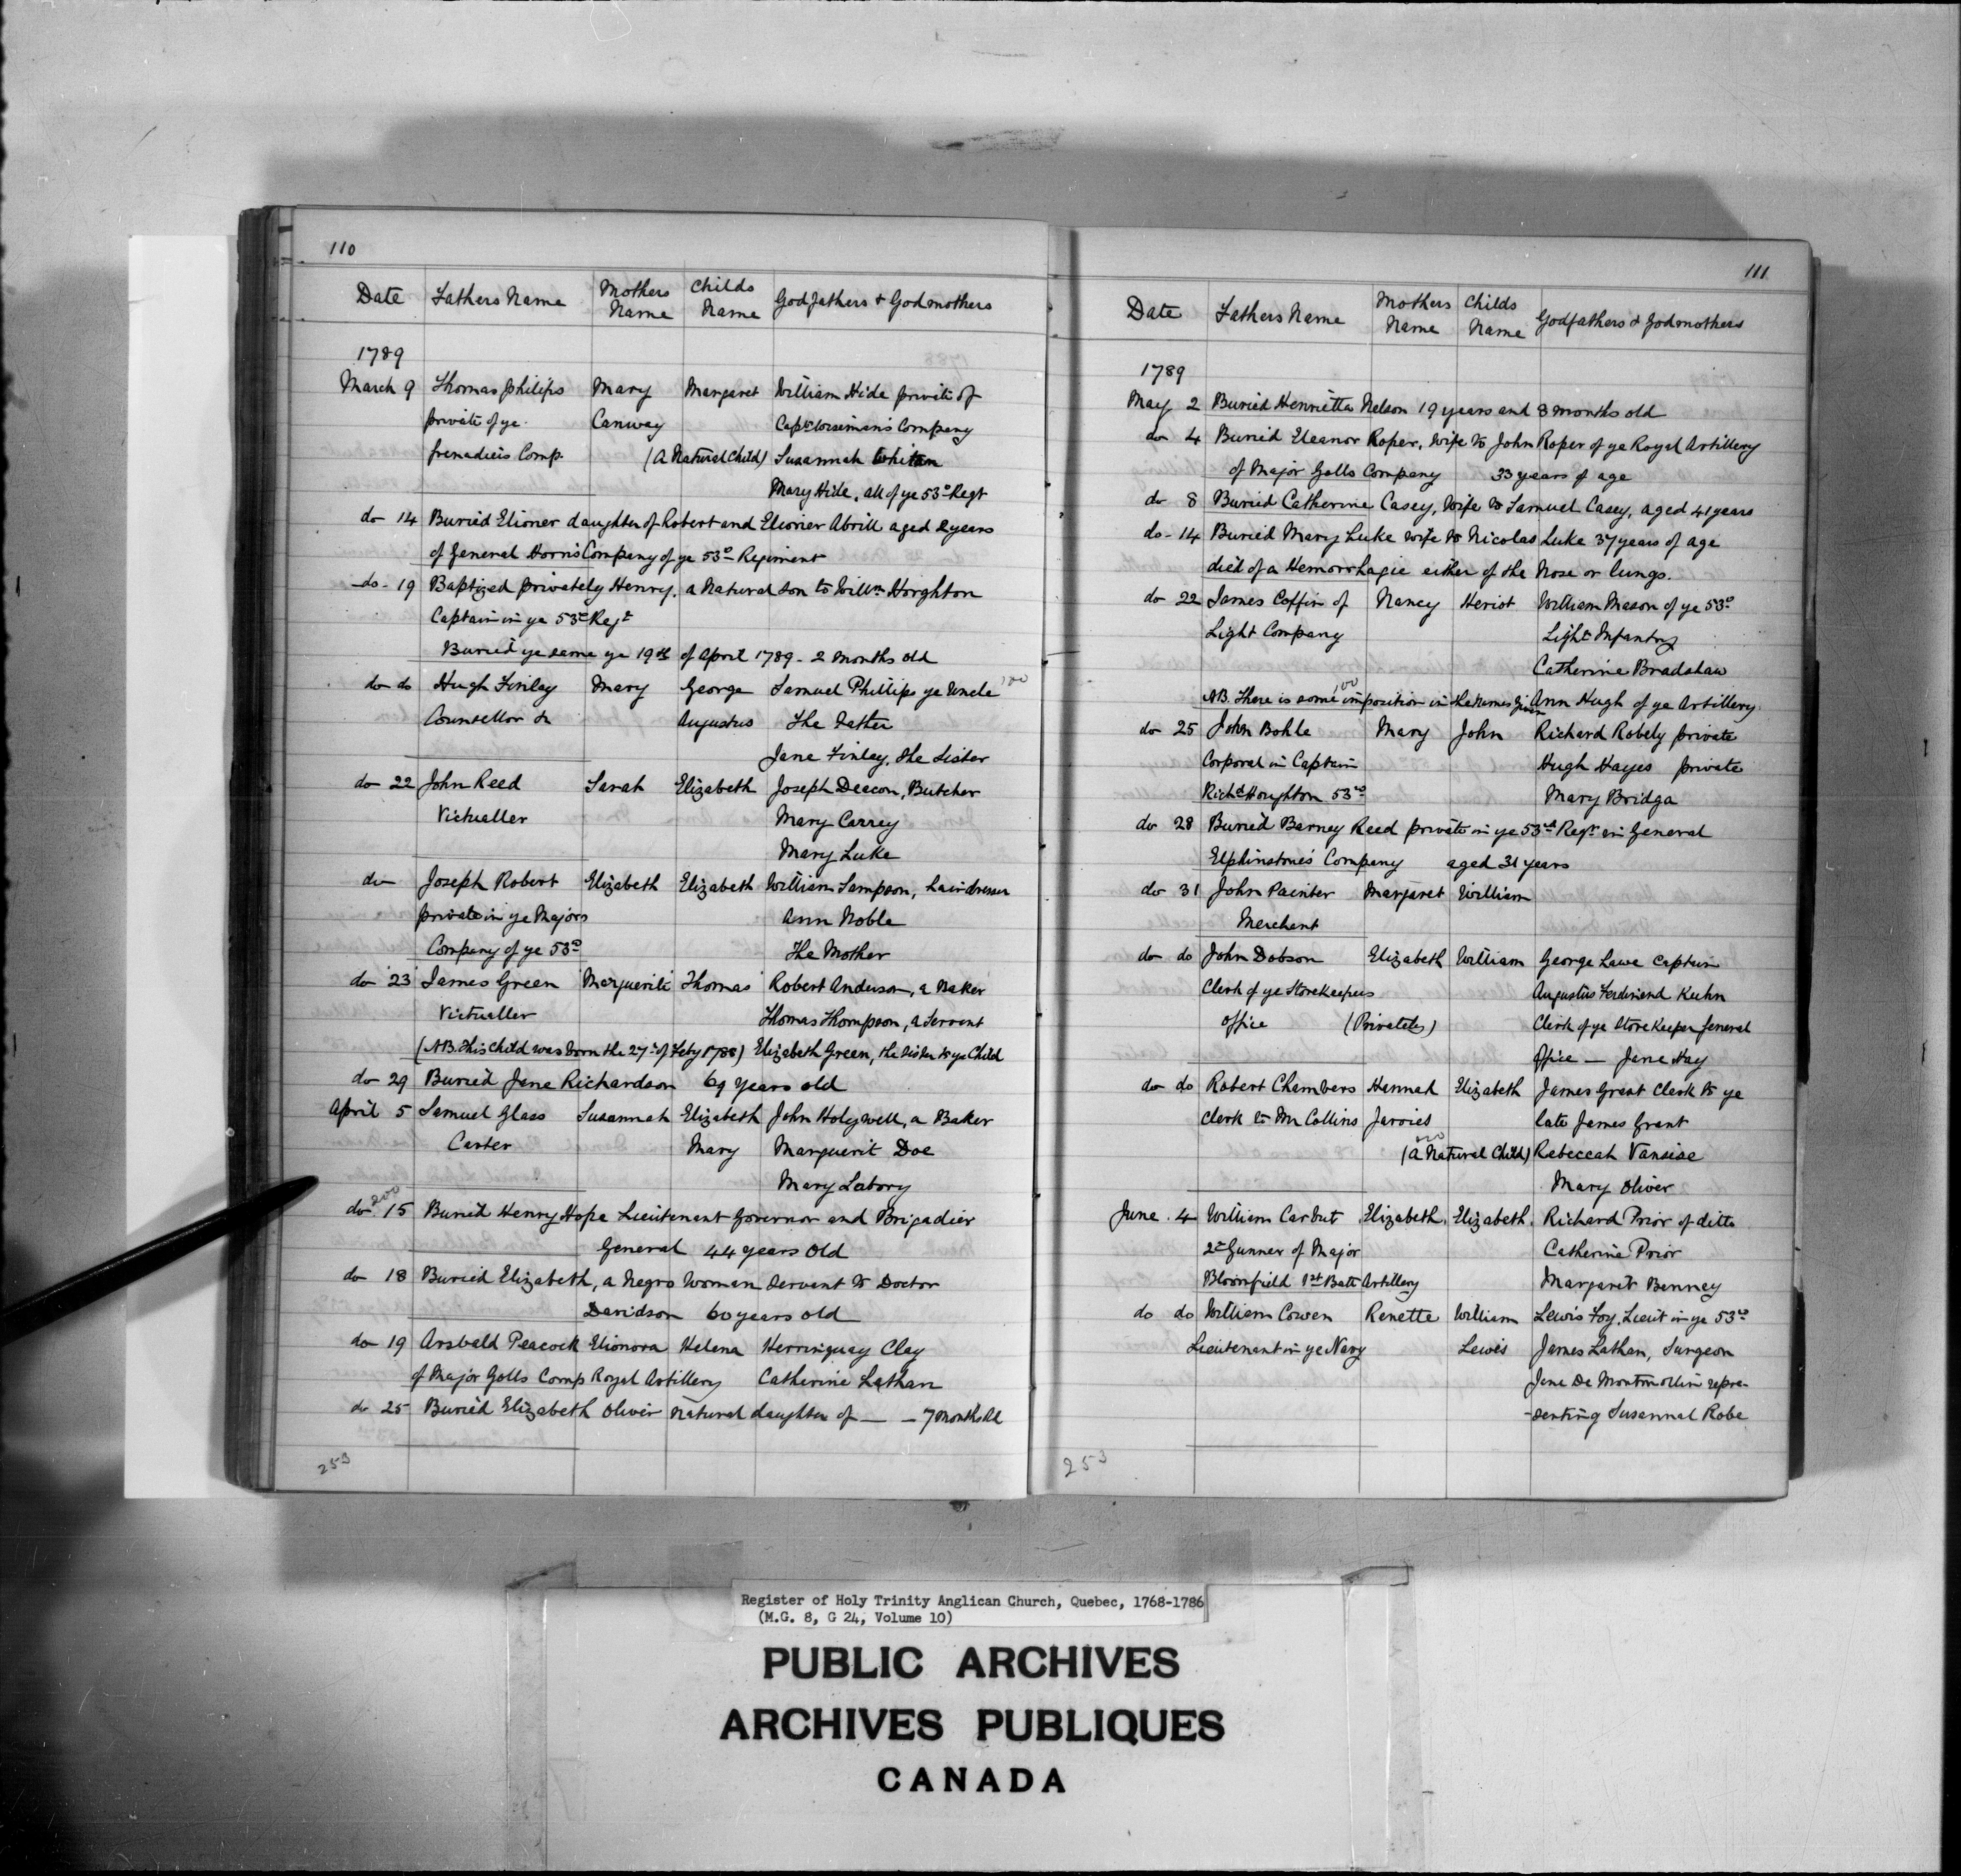 110
Date Fathers Name Mothers Name Childs Name Godfathers & Godmothers
1789
March 9 Thomas Philips Mary Margaret William Hide private of
private of ye Canway Capt Wisemans Company
Grenadiers Comp. (A Natural Child) Susannah Whitan
Mary Hide, all of ye 53d Regt
do 14 Buried Elioner daughter of Robert and Elionier Abrill aged 2 years
of General Horns Company of ye 53d Regiment
do - 19 Baptized privately Henry, a Natural son to Willm Horghton
Captain in ye 53d Regt
Buried ye same ye 19th of April 1789 - 2 Months old
do do Hugh Finlay Mary George Samuel Phillips ye Uncle
Counsellor &c Augustus The Father
Jane Finlay, the Sister
do 22 John Reed Sarah Elizabeth Joseph Deacon, Butcher
Victualler Mary Carrey
Mary Luke
do Joseph Robert Elizabeth Elizabeth William Sampson, hairdresser
private in ye Majors Ann Noble
Company of ye 53d The Mother
do 23 James Green Marguerite Thomas Robert Anderson, a Baker
Victualler Thomas Thompson, a Servant
(NB. This child was born the 27th of Feby 1788) Elizabeth Green, the sister to ye Child
do 29 Buried Jane Richardson 69 years old
April 5 Samuel Glass Susannah Elizabeth John Holywell, a Baker
Carter Mary Marguerit Doe
Mary Labory
do 15 Buried Henry Hope Lieutenant Governor and Brigadier
General 44 years old
do 18 Buried Elizabeth, a Negro Woman servant to Doctor
Davidson 60 years old
do 19 Arsbald Peacock Elionora Helena Herringuay Clay
of Major Golls Comp Royal Artillery Catherine Lathan
do 25 Buried Elizabeth Oliver natural daughter of — — 7 months old
253
111
Date Fathers Name Mothers Name Childs Name Godfathers & Godmothers
1789
May 2 Buried Henrietta Nelson 19 years and 8 months old
do 4 Buried Eleanor Roper, wife to John Roper of ye Royal Artillery
of Major Golls Company 33 years of age
do 8 Buried Catherine Casey, wife to Samuel Casey, aged 41 years
do - 14 Buried Mary Luke wife to Nicolas Luke 37 years of age
died of a Hemorrhagie either of the Nose or lungs.
do 22 James Coffin of Nancy Heriot William Mason of ye 53d
Light Company Light Infantry
Catherine Bradshaw
NB. There is some imposition in the names given Ann Hugh of ye Artillery
do 25 John Bohle Mary John Richard Robely private
Corporal in Captain Hugh Hayes private
Richd Houghton 53d Mary Bridga
do 28 Buried Barney Reed private in ye 53d Regt in General
Elphinstone's Company aged 31 years
do 31 John Painter Margaret William
Merchant
do do John Dobson Elizabeth William George Lawe Captain
Clerk of ye Storekeepers Augustus Ferdinand Kuhn
office (Privately) Clerk of ye Store Keeper General
Office — Jane Hay
do do Robert Chambers Hannah Elizabeth James Grant Clerk to ye
Clerk to Mr Collins Jarvies late James Grant
(A Natural Child) Rebeccah Vansise
Mary Oliver
June 4 William Carbut Elizabeth Elizabeth Richard Prior of ditto
2d Gunner of Major Catherine Prior
Bloomfield 1st Batt Artillery Margaret Benney
do do William Cowen Renette William Lewis Foy, Lieut in ye 53d
Lieutenant in ye Navy Lewis James Lathan, Surgeon
Jane De Montmollin repre-
-senting Susannah Robe
253
Register of Holy Trinity Anglican Church, Quebec, 1768-1786
(M.G. 8, G 24, Volume 10)
PUBLIC ARCHIVES
ARCHIVES PUBLIQUES
CANADA